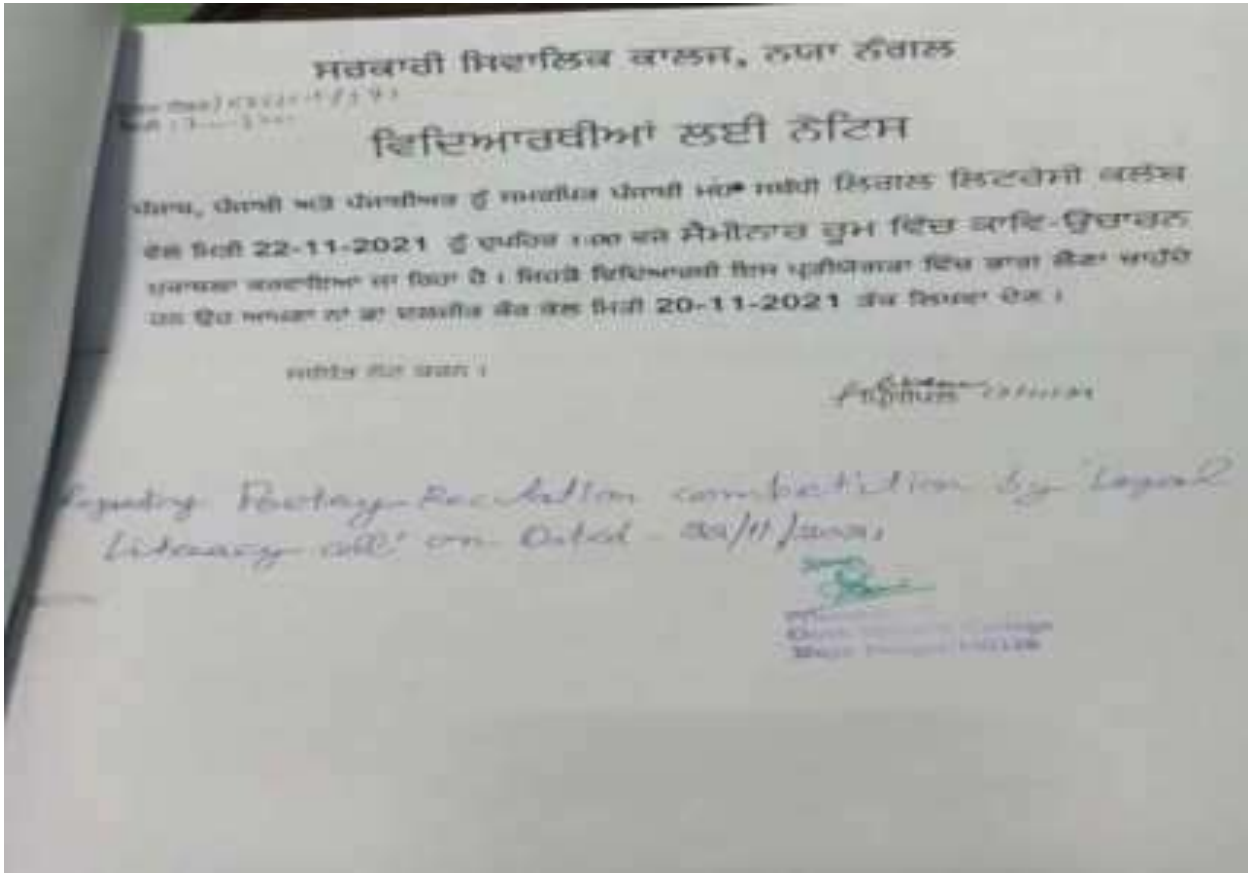 ਸਰਕਾਰੀ ਸ਼ਿਵਾਲਿਕ ਕਾਲਜ, ਨਯਾ ਨੰਗਲ
ਵਿਦਿਆਰਥੀਆਂ ਲਈ ਨੋਟਿਸ
ਪੰਜਾਬ, ਪੰਜਾਬੀ ਅਤੇ ਪੰਜਾਬੀਅਤ ਨੂੰ ਸਮਰਪਿਤ ਪੰਜਾਬੀ ਲਿਗਲ ਲਿਟਰੇਸੀ ਕਲੱਬ
ਵੱਲੋਂ ਮਿਤੀ 22-11-2021 ਨੂੰ ਦੁਪਹਿਰ 1:00 ਵਜੇ ਸੈਮੀਨਾਰ ਰੂਮ ਵਿੱਚ ਕਾਵਿ-ਉਚਾਰਨ
ਮੁਕਾਬਲਾ ਕਰਵਾਇਆ ਜਾ ਰਿਹਾ ਹੈ । ਜਿਹੜੇ ਵਿਦਿਆਰਥੀ ਇਸ ਪ੍ਰਤੀਯੋਗਤਾ ਵਿੱਚ ਭਾਗ ਲੈਣਾ ਚਾਹੁੰਦੇ
ਹਨ ਉਹ ਆਪਣਾ ਨਾਂ ਡਾ ਕੌਰ ਕੋਲ ਮਿਤੀ 20-11-2021 ਤੱਕ ਲਿਖਵਾ ਦੇਣ ।
ਸਬੰਧਿਤ ਨੋਟ ਕਰਨ ।
ਪ੍ਰਿੰਸੀਪਲ
Regarding Poetry Recitation combetition by Legal
Literacy cell on Dated - 22/11/2021